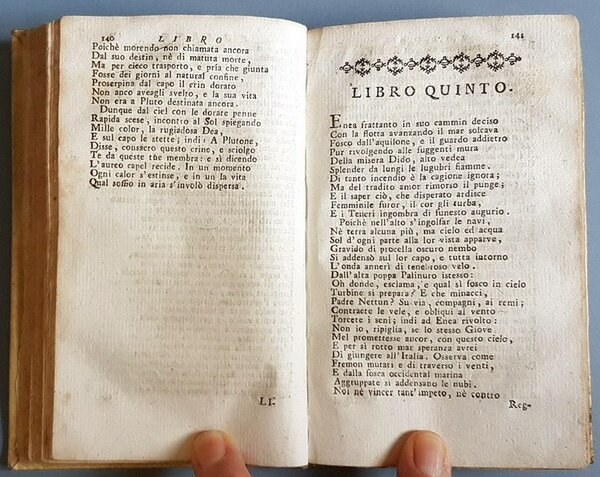 140 LIBRO
Poichè morendo non chiamata ancora
Dal suo destin, nè di matura morte,
Ma per cieco trasporto, e pria che giunta
Fosse dei giorni al natural confine,
Proserpina dal capo il crin dorato
Non anco aveagli svelto, e la sua vita
Non era a Pluto destinata ancora.
Dunque dal ciel con le dorate penne
Rapida scese, incontro al Sol spiegando
Mille color, la rugiadosa Dea,
E sul capo le stette; indi: A Plutone,
Disse, consacro questo crine, e sciolgo
Te da queste tue membra: e sì dicendo
L'aureo capel recide. In un momento
Ogni calor s'estinse, e in un la vita
Qual soffio in aria s'involò dispersa.
LI-
141
LIBRO QUINTO.
Enea frattanto in suo cammin deciso
Con la flotta avanzando il mar solcava
Fosco dall'aquilone, e il guardo addietro
Pur rivolgendo alle fuggenti mura
Della misera Dido, alto vedea
Splender da lungi le lugubri fiamme.
Di tanto incendio è la cagione ignora;
Ma del tradito amor rimorso il punge;
E il saper ciò, che disperato ardisce
Femminile furor, il cor gli turba,
E i Teucri ingombra di funesto augurio.
Poichè nell'alto s'ingolfar le navi,
Nè terra alcuna più, ma cielo ed acqua
Sol d'ogni parte alla lor vista apparve,
Gravido di procella oscuro nembo
Si addensò sul lor capo, e tutta intorno
L'onda annerì di tenebroso velo.
Dall'alta poppa Palinuro istesso:
Oh donde, esclama, e qual sì fosco in cielo
Turbine si prepara? E che minacci,
Padre Nettun? Su via, compagni, ai remi;
Contraete le vele, e obliqui al vento
Torcete i seni; indi ad Enea rivolto:
Non io, ripiglia, se lo stesso Giove
Mel promettesse ancor, con questo cielo,
E per sì rotto mar speranza avrei
Di giungere all'Italia. Osserva come
Fremon mutati e di traverso i venti,
E dalla fosca occidental marina
Aggruppate si addensano le nubi.
Noi nè vincer tant'impeto, nè contro
Reg-